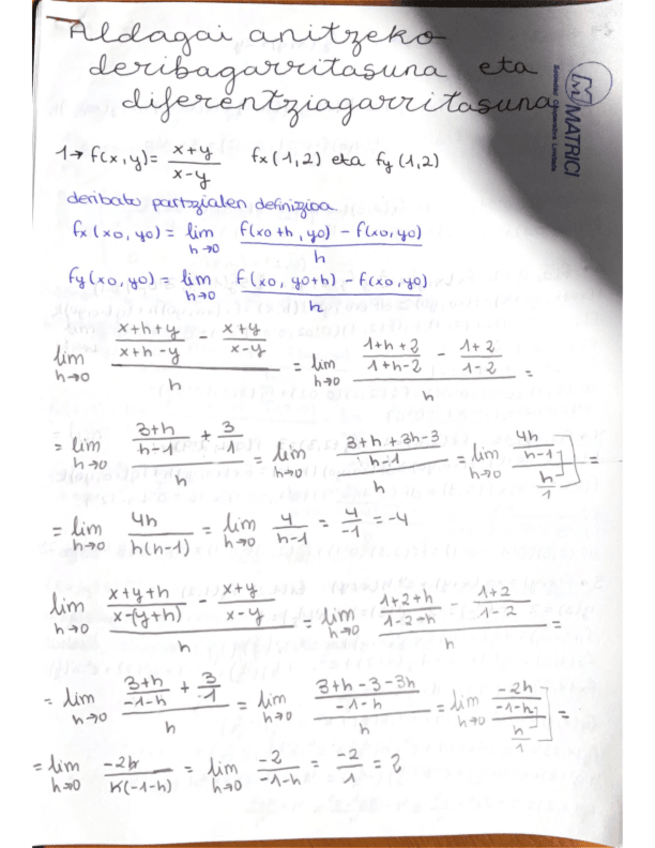 Aldagai anitzeko
deribagarritasuna eta
diferentziagarritasuna
MATRICI
Sociedad Cooperativa Limitada
1→ f(x,y)= (x+y)/(x-y) fx(1,2) eta fy(1,2)
deribatu partzialen definizioa
fx(x0,y0) = lim h→0 (f(x0+h,y0) - f(x0,y0))/h
fy(x0,y0) = lim h→0 (f(x0,y0+h) - f(x0,y0))/h
lim h→0 ((x+h+y)/(x+h-y) - (x+y)/(x-y))/h = lim h→0 ((1+h+2)/(1+h-2) - (1+2)/(1-2))/h =
= lim h→0 ((3+h)/(h-1) + 3/1)/h = lim h→0 ((3+h+3h-3)/(h-1))/h = lim h→0 (4h/(h-1))/(h/1) =
= lim h→0 4h/(h(h-1)) = lim h→0 4/(h-1) = 4/-1 = -4
lim h→0 ((x+y+h)/(x-(y+h)) - (x+y)/(x-y))/h = lim h→0 ((1+2+h)/(1-2-h) - (1+2)/(1-2))/h =
= lim h→0 ((3+h)/(-1-h) + 3/1)/h = lim h→0 ((3+h-3-3h)/(-1-h))/h = lim h→0 (-2h/(-1-h))/(h/1) =
= lim h→0 -2h/(h(-1-h)) = lim h→0 -2/(-1-h) = -2/-1 = 2